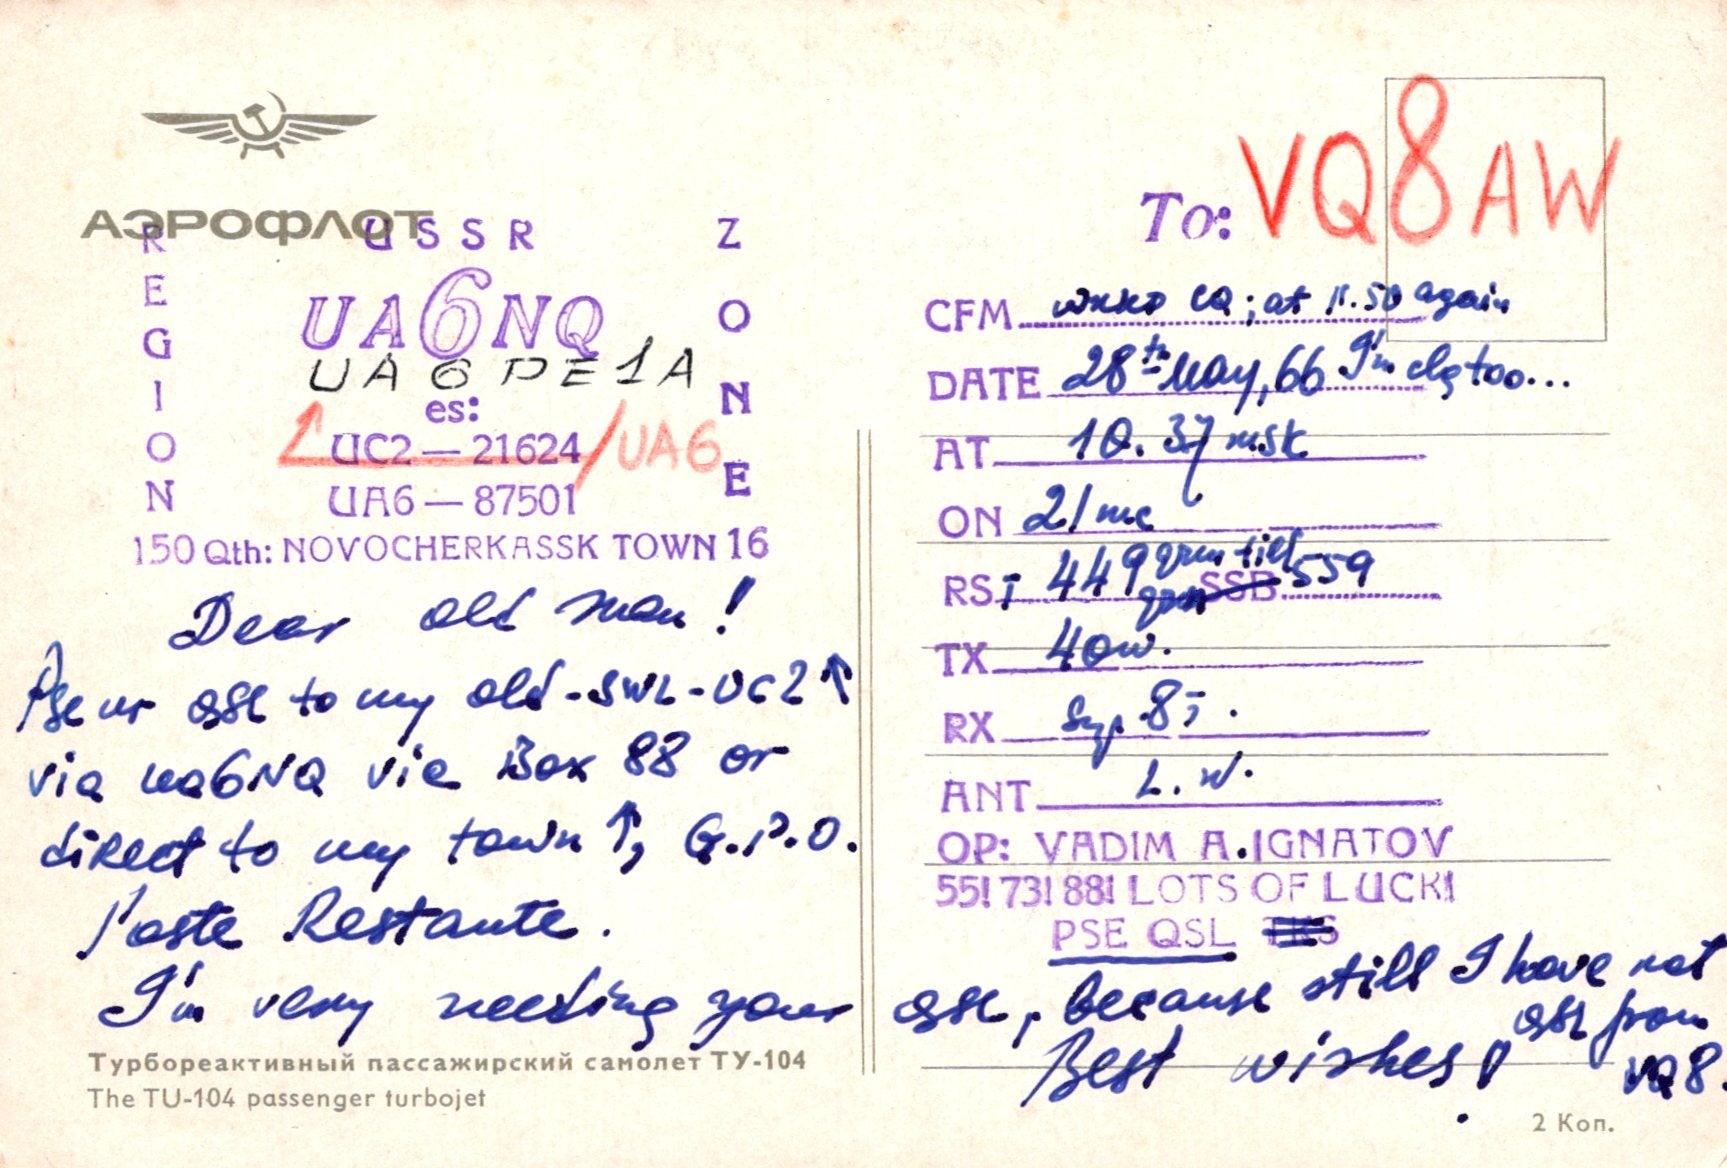 АЭРОФЛОТ
USSR
REGION
ZONE
UA6NQ
UA6PE1A
es:
UC2—21624/UA6
UA6—87501
150 Qth: NOVOCHERKASSK TOWN 16
Dear old man!
Pse ur qsl to my old-SWL-UC2↑
via ua6NQ via Box 88 or
direct to my town↑, G.P.O.
Poste Restante.
I'm very needing your
Турбореактивный пассажирский самолет ТУ-104
The TU-104 passenger turbojet
To: VQ8AW
CFM CQ; at again
DATE 28th May, 66 I'm too...
AT 10.37 msk
ON 21 mc
RST 449 qrm till SSB 559
qrm
TX 40w.
RX 8T.
ANT L.W.
OP: VADIM A.IGNATOV
55! 73! 88! LOTS OF LUCK!
PSE QSL TKS
qsl, because still I have not
qsl from
VQ8.
Best wishes!
2 Коп.